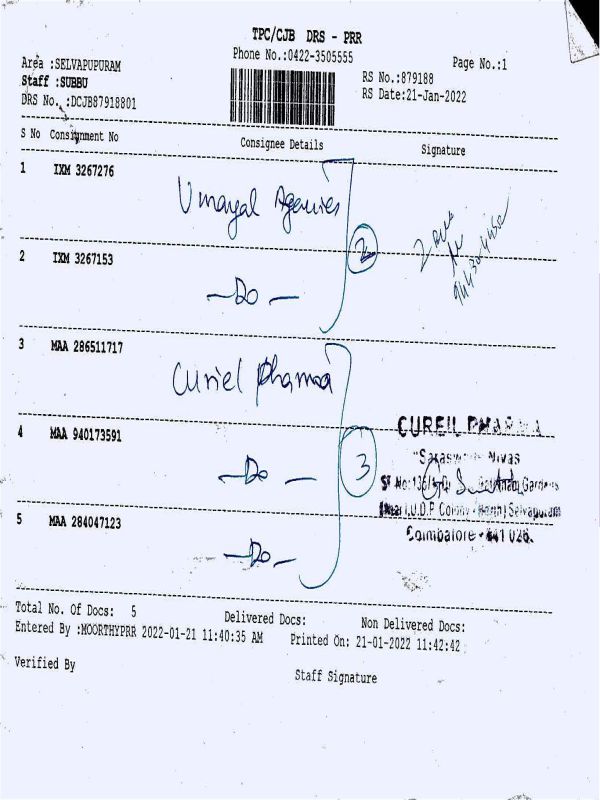 TPC/CJB DRS - PRR
Phone No.:0422-3505555
Page No.:1
Area :SELVAPUPURAM
Staff :SUBBU
DRS No. :DCJB87918801
RS No.:879188
RS Date:21-Jan-2022
S No Consignment No Consignee Details Signature
1 IXM 3267276
Umayal Agencies
2
2 IXM 3267153
-Do-
3 MAA 286511717
Curiel Pharma
CUREIL PHARMA
4 MAA 940173591
-Do-
3
Nivas
Gardens
Colony Selvapuram
5 MAA 284047123
Coimbatore - 641 026.
-Do-
Total No. Of Docs: 5 Delivered Docs: Non Delivered Docs:
Entered By :MOORTHYPRR 2022-01-21 11:40:35 AM Printed On: 21-01-2022 11:42:42
Verified By
Staff Signature